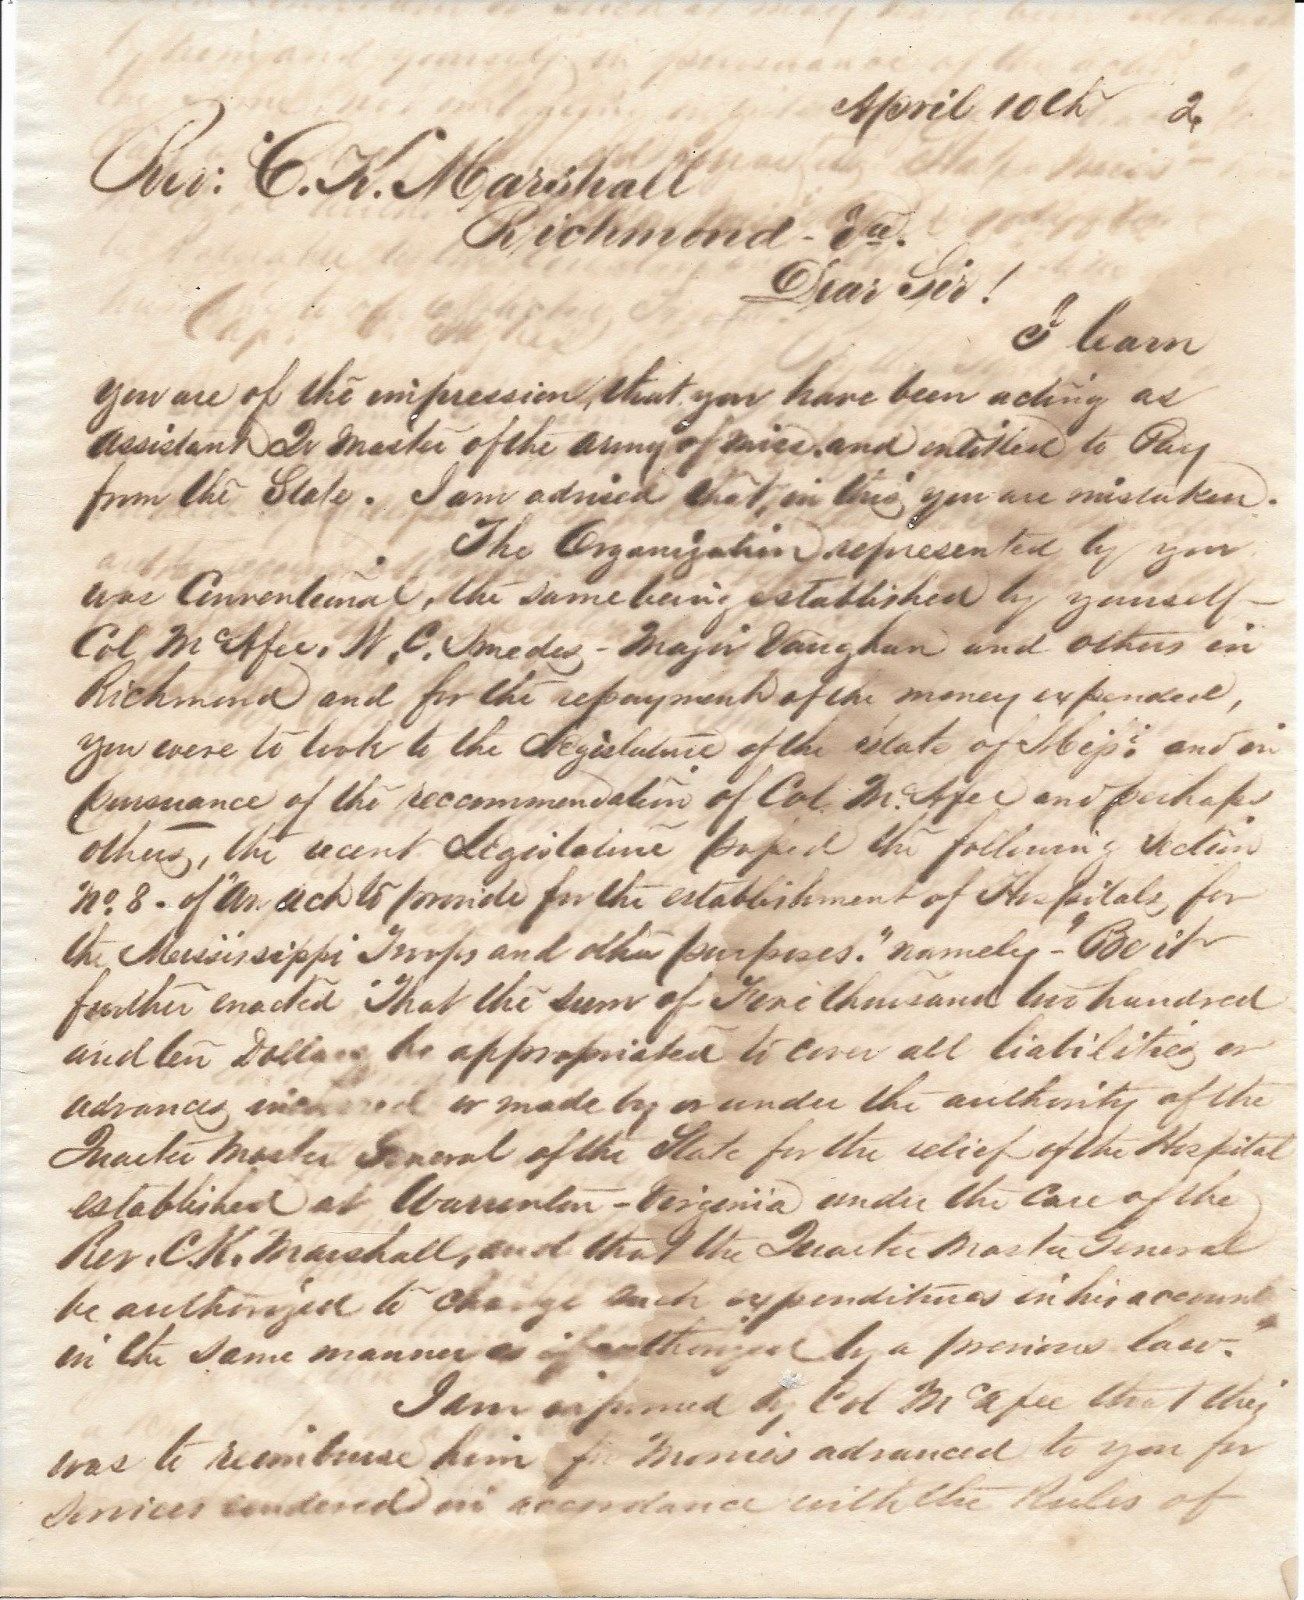 April 10th 2.
Rev: C. K. Marshall
Richmond - Va.
Dear Sir!
I learn
you are of the impression, that you have been acting as
assistant Qr Master of the army of Miss. and entitled to Pay
from the State. I am advised that, in this you are mistaken.
The Organization represented by you
was Conventional, the same being established by yourself -
Col McAfee, W. C. Smedes - Major Vaughan and others in
Richmond and for the repayment of the money expended,
you were to look to the Legislature of the State of Missi. and in
pursuance of the reccommendation of Col McAfee and perhaps
others, the recent Legislature passed the following Section
No. 8 - of "An act to provide for the establishment of Hospitals for
the Mississippi Troops and other purposes." namely - "Be it
further enacted That the sum of thousand two hundred
and ten Dollars be appropriated to cover all liabilities or
advances incurred or made by or under the authority of the
Quarter Master General of the State for the relief of the Hospital
established at Warrenton - Virginia under the care of the
Rev. C. K. Marshall, and that the Quarter Master General
be authorized to charge such expenditures in his account
in the same manner as if authorized by a previous law."
I am informed by Col McAfee that this
was to reimburse him for Monies advanced to you for
services rendered in accordance with the Rules of